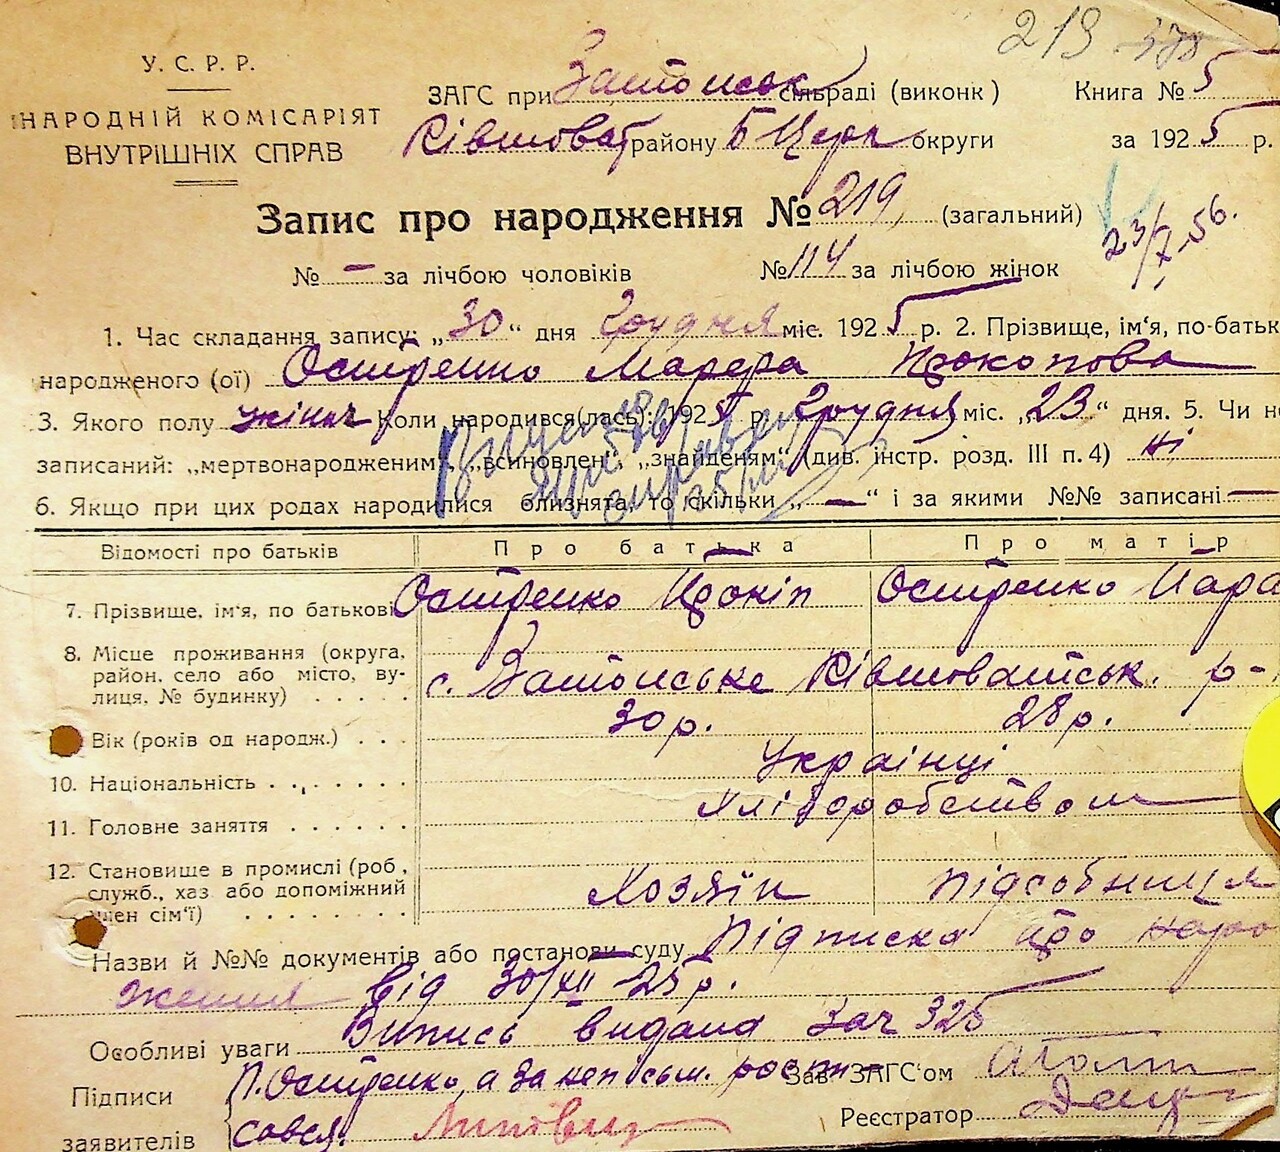 219
У. С. Р. Р.
НАРОДНІЙ КОМІСАРІЯТ
ВНУТРІШНІХ СПРАВ
ЗАГС при сільраді (виконк)
району Б Церк округи
Книга № 5
за 1925 р.
Запис про народження № 219 (загальний)
23/7-56.
№ — за лічбою чоловіків
№ 114 за лічбою жінок
1. Час складання запису: „30“ дня Грудня міс. 1925 р. 2. Прізвище, ім'я, по-батьк
народженого (ої) Остренко Прокопова
3. Якого полу жіноч Коли народився(лась): 1925 р. Грудня міс. „23“ дня. 5. Чи не
записаний: „мертвонародженим“, „всиновлен“, „знайденям“ (див. інстр. розд. III п. 4) ні
6. Якщо при цих родах народилися близнята, то скільки „—“ і за якими №№ записані —
Відомості про батьків
Про батька
Про матір
7. Прізвище, ім'я, по батькові
Остренко Прокіп
Остренко Пара
8. Місце проживання (округа,
район, село або місто, вулиця, № будинку)
с. р-
Вік (років од народж.)
30 р.
28 р.
10. Національність
Українці
11. Головне заняття
Хліборобством
12. Становище в промислі (роб.,
служб., хаз. або допоміжний
член сім'ї)
Хозяїн
підсобниця
Назви й №№ документів або постанови суду Підписка про наро
ження від 30/XII-25 р.
Особливі уваги Випись видана Зач 325
Підписи
заявителів
П. Остренко, а за неписьм. роспи-
сався.
Зав ЗАГС'ом
Реєстратор